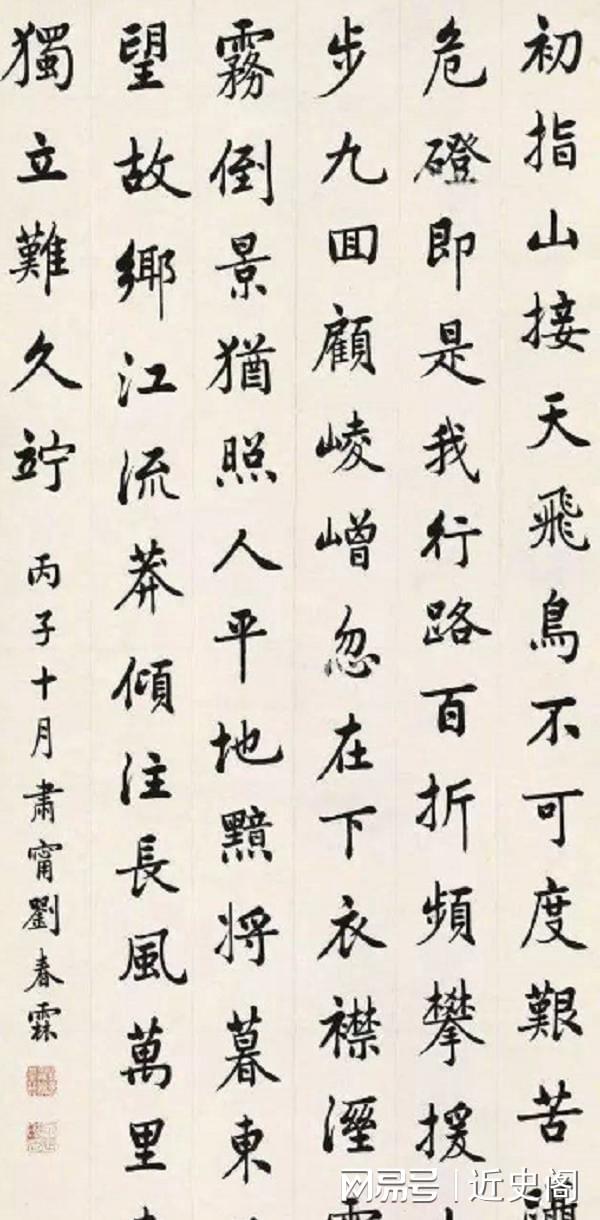 初指山接天飛鳥不可度艱苦
危磴即是我行路百折頻攀援
步九回顧崚嶒忽在下衣襟溼
霧倒景猶照人平地黯將暮東
望故鄉江流莽傾注長風萬里
獨立難久竚
丙子十月肅甯劉春霖
网易号 | 近史阁